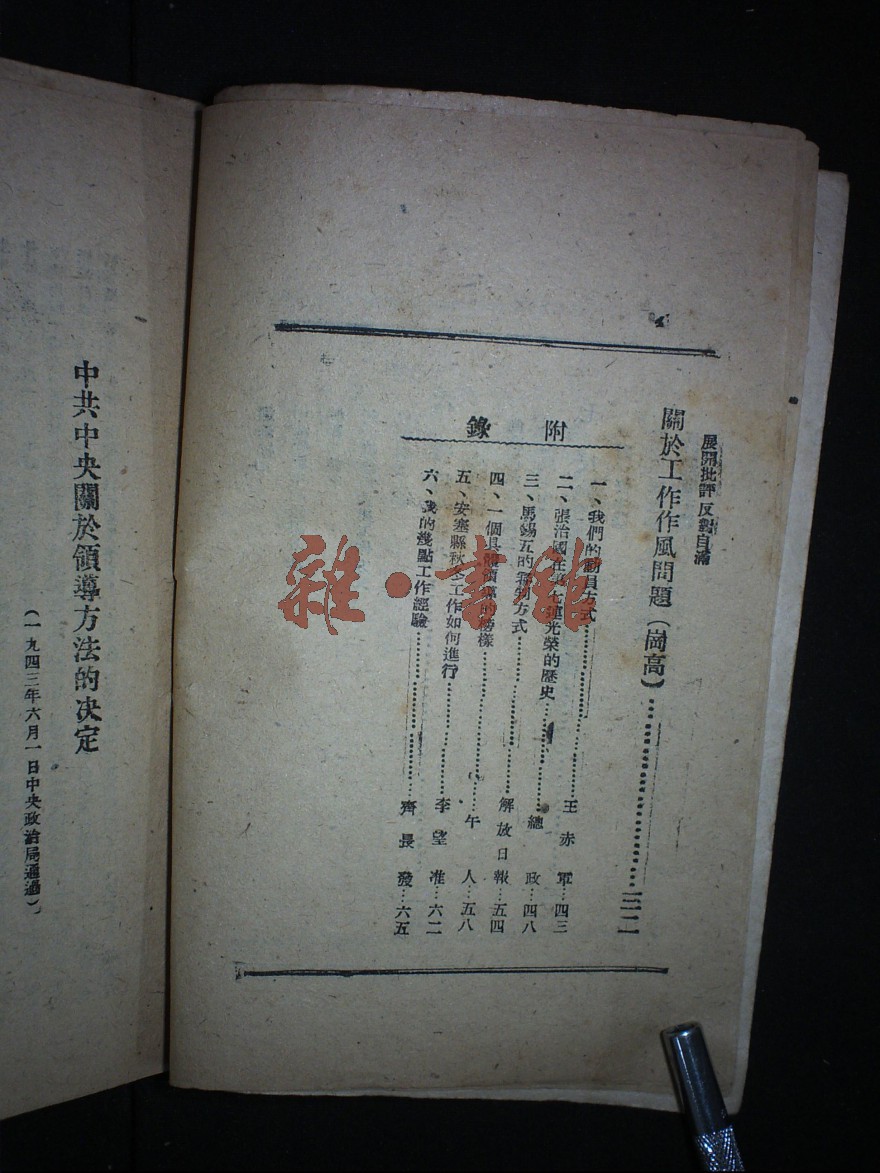 展開批評反對自滿
關於工作作風問題(崗高)
附錄
一、我們的動員方式 王赤軍 四三
二、張治國在 光榮的歷史 總政 四八
三、馬錫五的 方式 解放日報 五四
四、一個具體領導的榜樣 午人 五八
五、安塞縣秋冬工作如何進行 李望准 六二
六、我的幾點工作經驗 齊長發 六五
中共中央關於領導方法的決定
(一九四三年六月一日中央政治局通過)
雜·書館